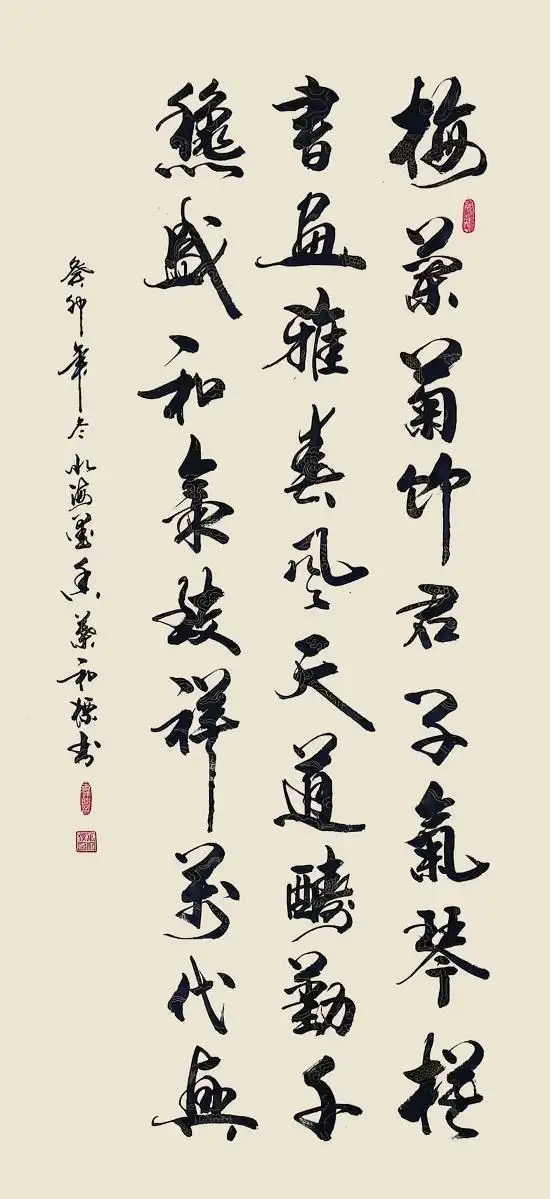 梅蘭菊竹君子氣琴棋
書畫雅春風天道醻勤千
龝盛和氣致祥萬代興
癸卯年冬海墨香和標书